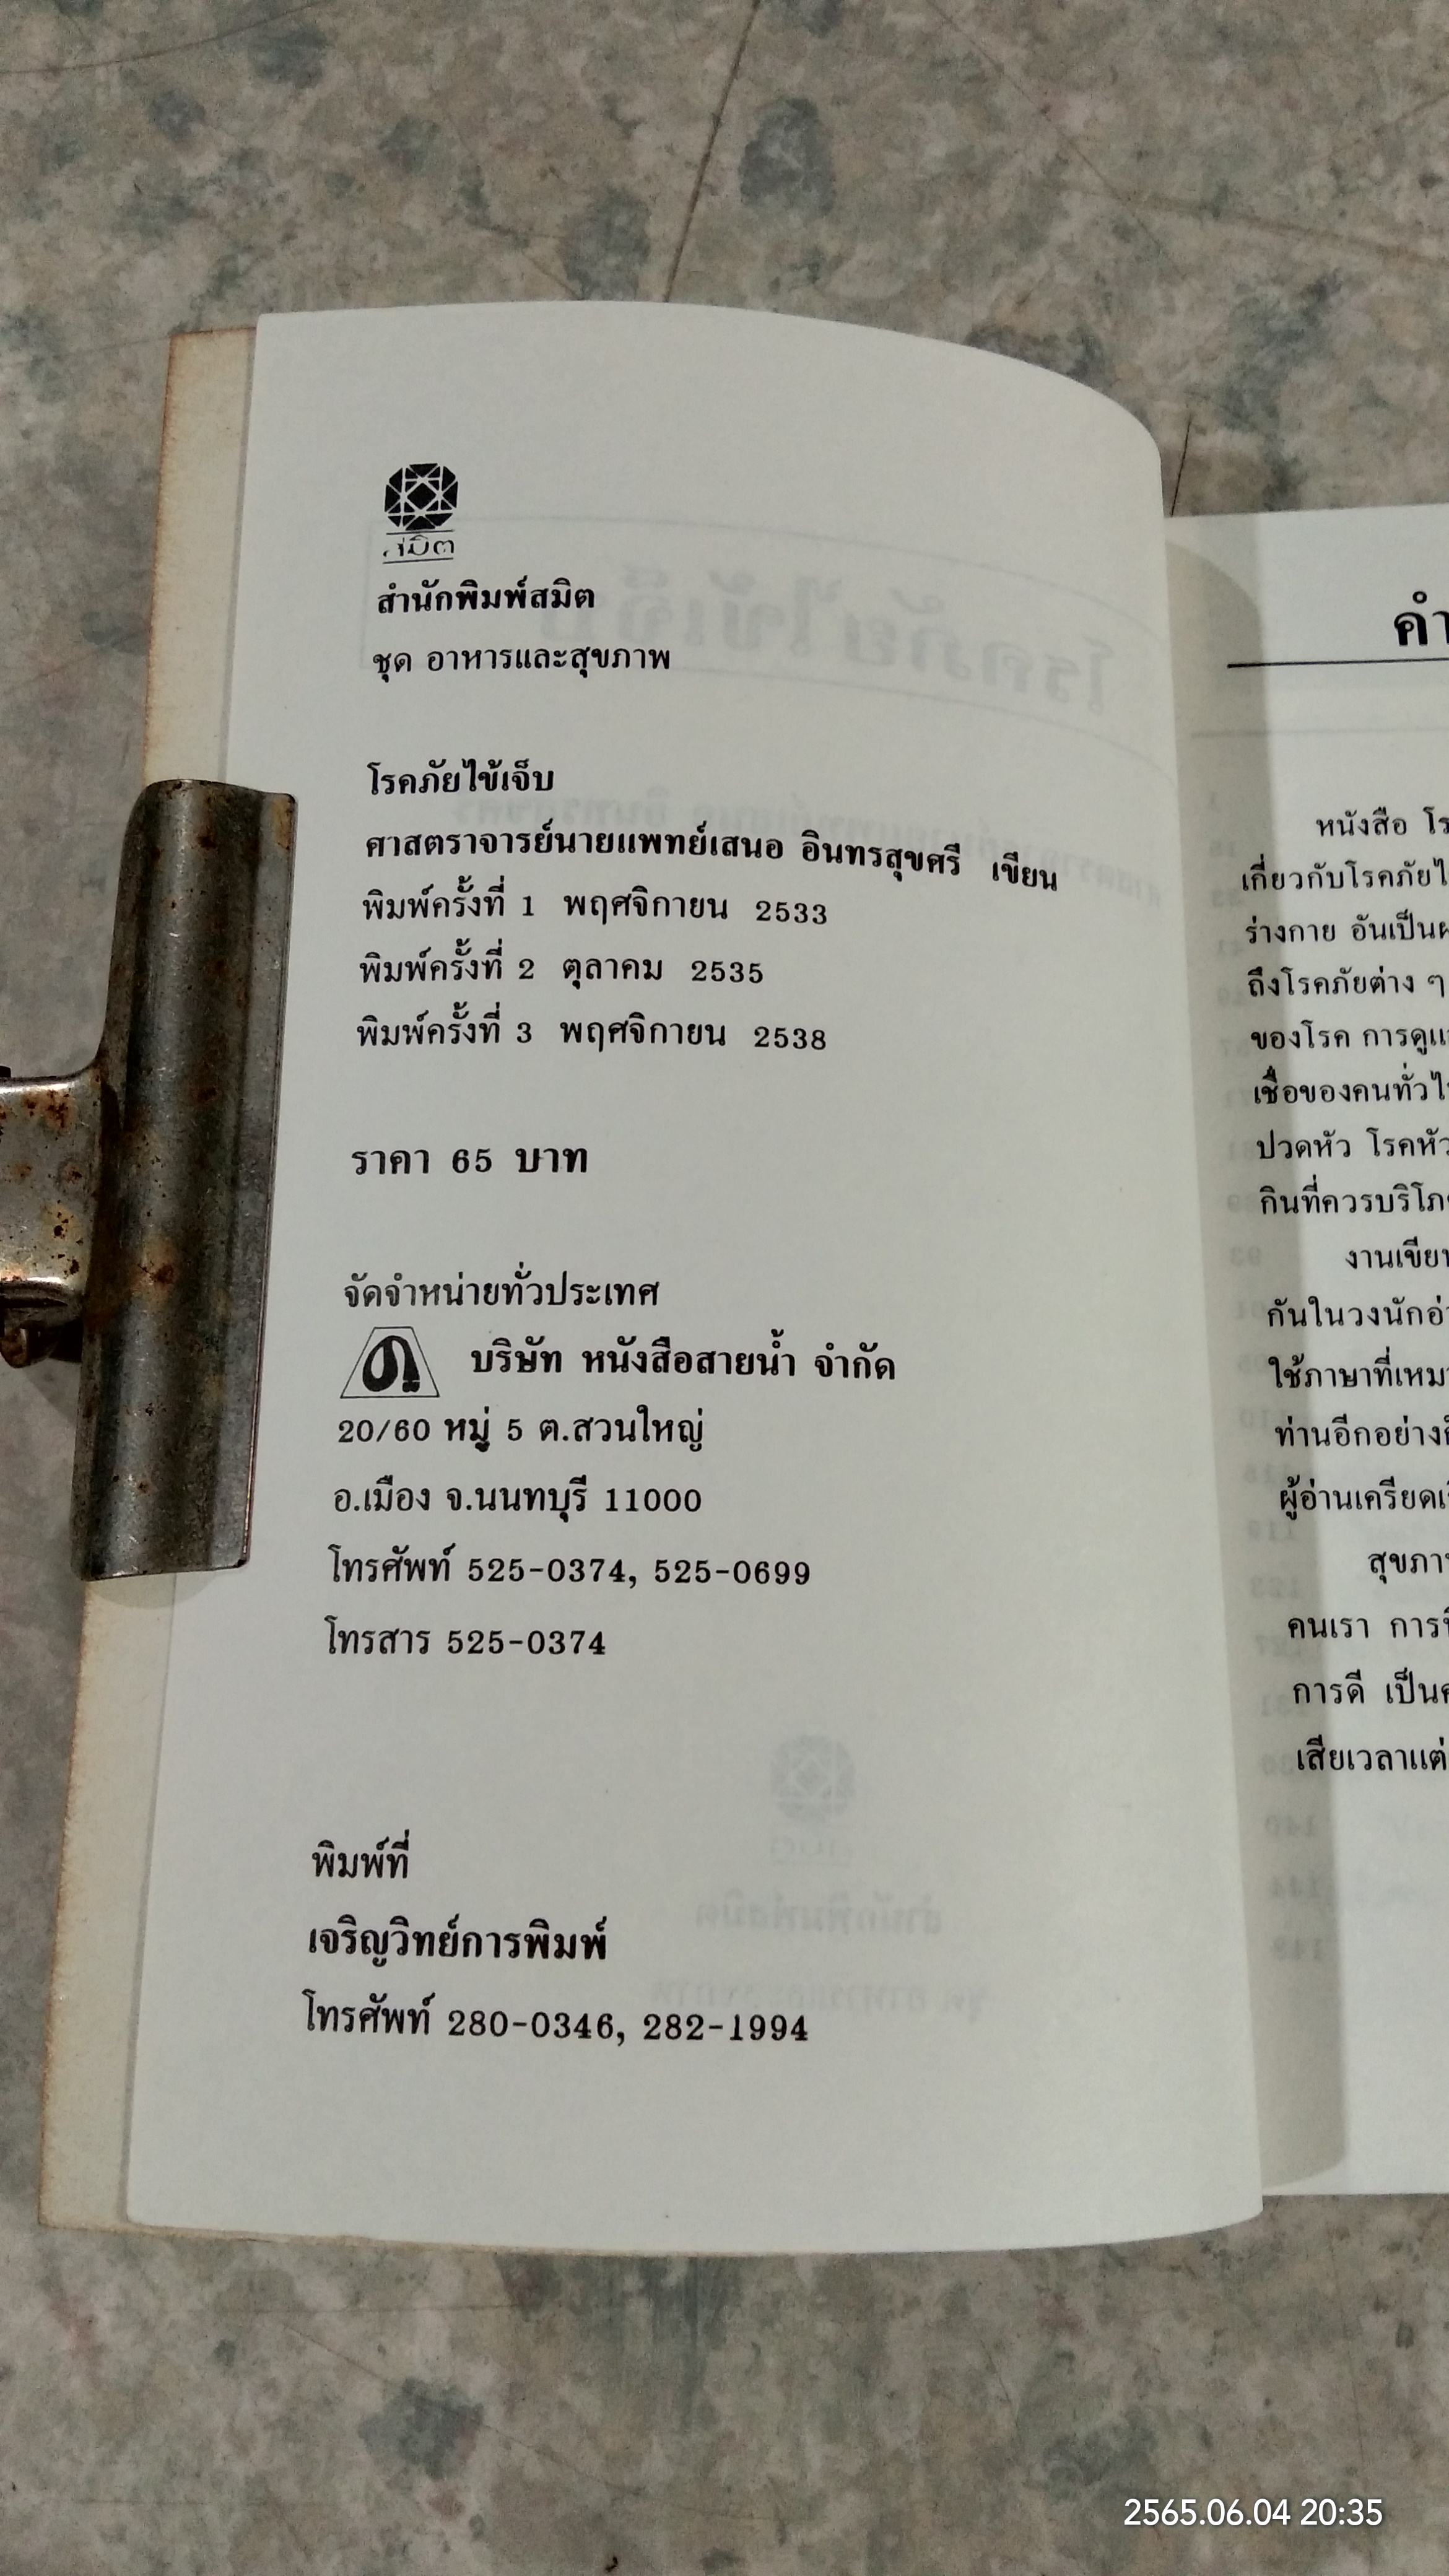 สมิต
สำนักพิมพ์สมิต
ชุด อาหารและสุขภาพ
โรคภัยไข้เจ็บ
ศาสตราจารย์นายแพทย์เสนอ อินทรสุขศรี เขียน
พิมพ์ครั้งที่ 1 พฤศจิกายน 2533
พิมพ์ครั้งที่ 2 ตุลาคม 2535
พิมพ์ครั้งที่ 3 พฤศจิกายน 2538
ราคา 65 บาท
จัดจำหน่ายทั่วประเทศ
บริษัท หนังสือสายน้ำ จำกัด
20/60 หมู่ 5 ต.สวนใหญ่
อ.เมือง จ.นนทบุรี 11000
โทรศัพท์ 525-0374, 525-0699
โทรสาร 525-0374
พิมพ์ที่
เจริญวิทย์การพิมพ์
โทรศัพท์ 280-0346, 282-1994
หนังสือ
เกี่ยวกับโรคภัย
ร่างกาย อันเป็น
ถึงโรคภัยต่าง ๆ
ของโรค การดูแ
เชื่อของคนทั่ว
ปวดหัว โรคหัว
กินที่ควรบริโภ
งานเขีย
กันในวงนักอ่
ใช้ภาษาที่เหม
ท่านอีกอย่าง
ผู้อ่านเครียด
สุขภา
คนเรา การ
การดี เป็น
เสียเวลาแต่
2565.06.04 20:35